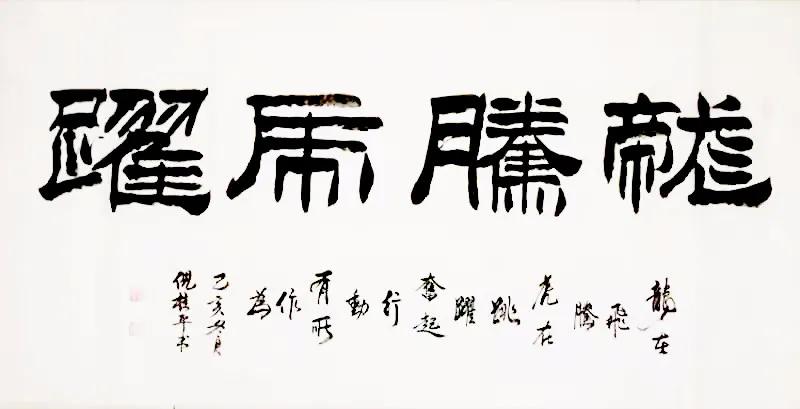 龍騰虎躍
龍在飛騰虎在跳躍奮起行動有所作為
己亥冬月
倪桂平书